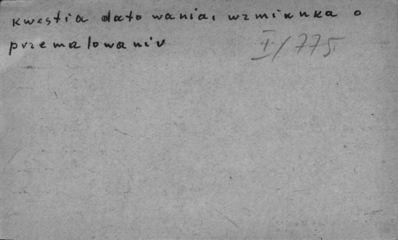 kwestia datowania, wzmianka o
przemalowaniu
I/775